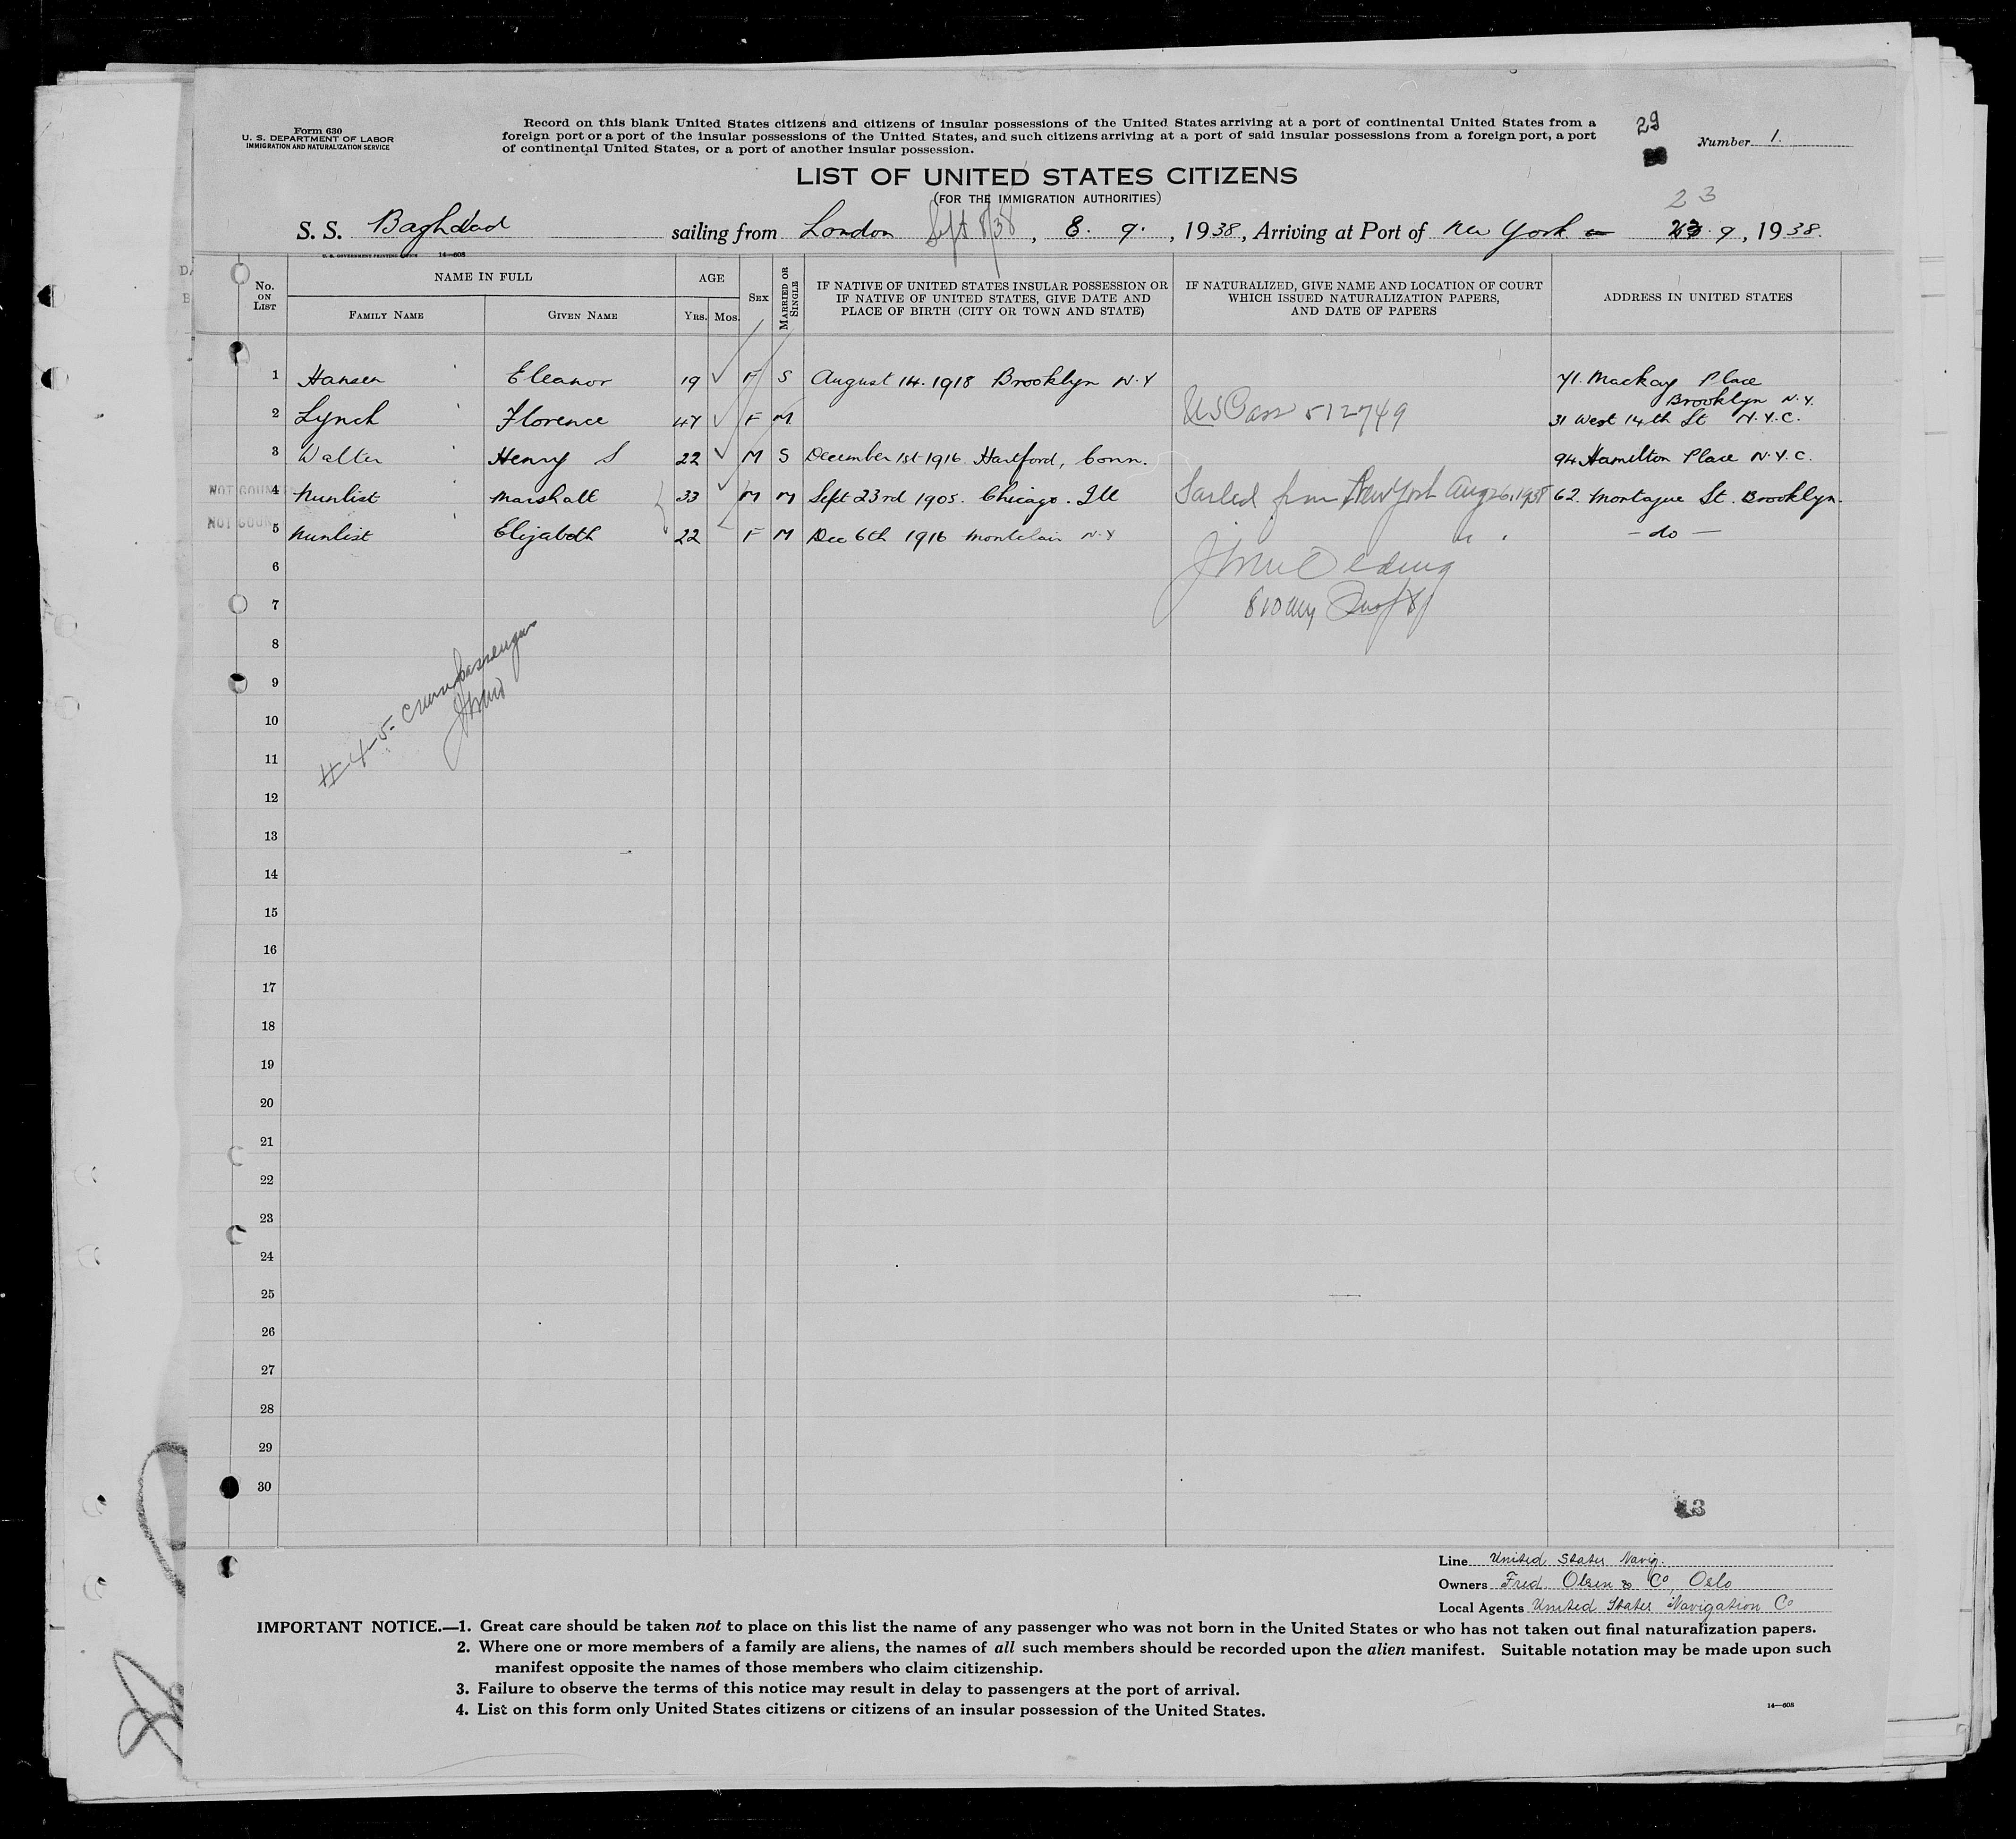 Form 630
U. S. DEPARTMENT OF LABOR
IMMIGRATION AND NATURALIZATION SERVICE
Record on this blank United States citizens and citizens of insular possessions of the United States arriving at a port of continental United States from a
foreign port or a port of the insular possessions of the United States, and such citizens arriving at a port of said insular possessions from a foreign port, a port
of continental United States, or a port of another insular possession.
29
Number 1.
LIST OF UNITED STATES CITIZENS
(FOR THE IMMIGRATION AUTHORITIES)
23
S. S. Baghdad sailing from London Sept 8/38, 8. 9., 1938, Arriving at Port of New York 23 9, 1938.
U. S. GOVERNMENT PRINTING OFFICE 14—608
No. ON LIST
NAME IN FULL
FAMILY NAME
GIVEN NAME
AGE
YRS. MOS.
SEX
MARRIED OR SINGLE
IF NATIVE OF UNITED STATES INSULAR POSSESSION OR
IF NATIVE OF UNITED STATES, GIVE DATE AND
PLACE OF BIRTH (CITY OR TOWN AND STATE)
IF NATURALIZED, GIVE NAME AND LOCATION OF COURT
WHICH ISSUED NATURALIZATION PAPERS,
AND DATE OF PAPERS
ADDRESS IN UNITED STATES
1 Hansen Eleanor 19 F S August 14. 1918 Brooklyn N.Y 71. Mackay Place
Brooklyn N.Y.
2 Lynch Florence 47 F M US Pass 512749 31 West 14th St N.Y.C.
3 Walter Henry S 22 M S December 1st-1916. Hartford, Conn. 94 Hamilton Place N.Y.C.
NOT COUN
4 Nunlist Marshall 33 M M Sept 23rd 1905. Chicago. Ill Sailed from New York Aug 26, 1938 62. Montague St. Brooklyn.
NOT COUN
5 Nunlist Elizabeth 22 F M Dec 6th 1916 Montclair N.Y - do -
6
7
8
9
# 4-5-
10
11
12
13
14
15
16
17
18
19
20
21
22
23
24
25
26
27
28
29
30
13
Line United States Navig.
Owners Fred. Olsen & Co, Oslo
Local Agents United States Navigation Co
IMPORTANT NOTICE.—1. Great care should be taken not to place on this list the name of any passenger who was not born in the United States or who has not taken out final naturalization papers.
2. Where one or more members of a family are aliens, the names of all such members should be recorded upon the alien manifest. Suitable notation may be made upon such
manifest opposite the names of those members who claim citizenship.
3. Failure to observe the terms of this notice may result in delay to passengers at the port of arrival.
4. List on this form only United States citizens or citizens of an insular possession of the United States.
14—608